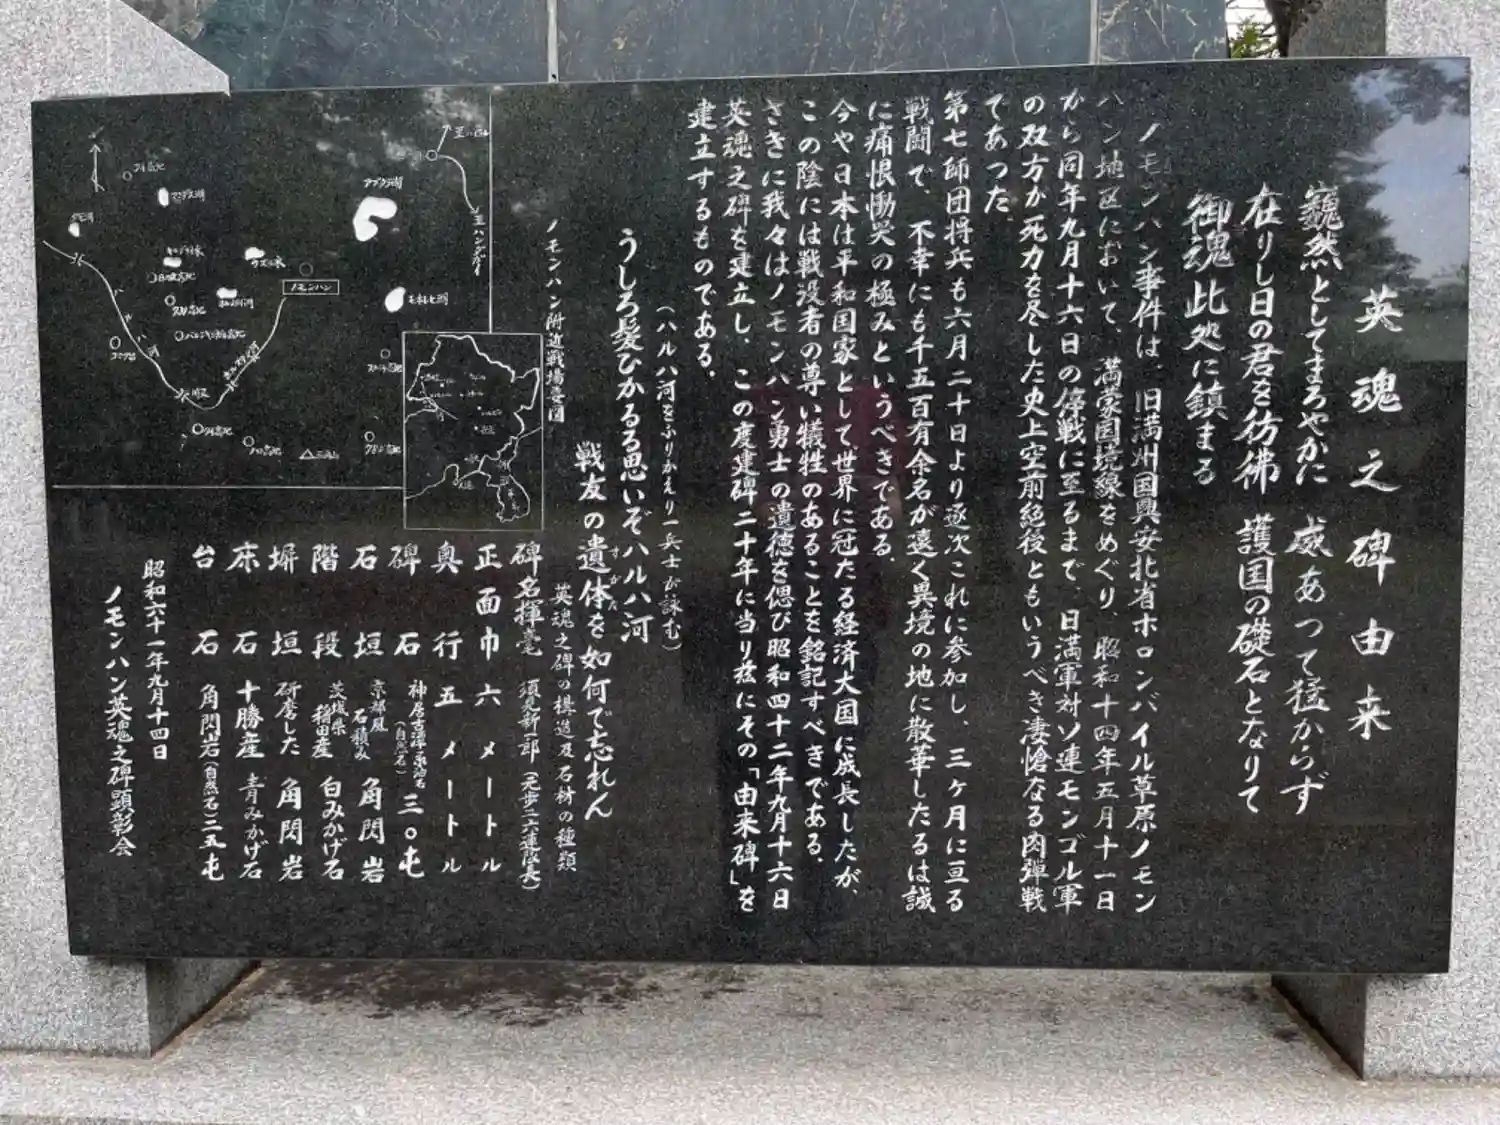 英魂之碑由来
巍然としてまろやかに 威あつて猛からず
在りし日の君を彷彿 護国の礎石となりて
御魂此処に鎮まる
ノモンハン事件は、旧満州国興安北省ホロンバイル草原ノモン
ハン地区において、満蒙国境線をめぐり、昭和十四年五月十一日
から同年九月十六日の停戦に至るまで、日満軍対ソ連モンゴル軍
の双方が死力を尽した史上空前絶後ともいうべき凄愴なる肉弾戦
であつた。
第七師団将兵も六月二十日より逐次これに参加し、三ヶ月に亘る
戦闘で、不幸にも千五百有余名が遠く異境の地に散華したるは誠
に痛恨慟哭の極みというべきである。
今や日本は平和国家として世界に冠たる経済大国に成長したが、
この陰には戦没者の尊い犠牲のあることを銘記すべきである。
さきに我々はノモンハン勇士の遺徳を偲び昭和四十二年九月十六日
英魂之碑を建立し、この度建碑二十年に当り茲にその「由来碑」を
建立するものである。
(ハルハ河をふりかえり一兵士が詠む)
うしろ髪ひかるる思いぞハルハ河
戦友の遺体を如何で忘れん
すがた
ノモンハン附近戦場要図
ノモンハン
アブダラ湖
モホレヒ湖
至ハンダガイ
英魂之碑の構造及石材の種類
碑名揮毫 須見新一郎(元歩二六連隊長)
正面巾 六メートル
奥行 五メートル
碑石 神居古潭 (自然石) 三〇屯
石垣 京都風石積み 角閃岩
階段 茨城県稲田産 白みかげ石
塀垣 研磨した 角閃岩
床石 十勝産 青みかげ石
台石 角閃岩(自然石)二五屯
昭和六十一年九月十四日
ノモンハン英魂之碑顕彰会